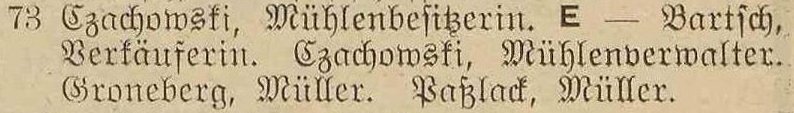 73 Czachowski, Mühlenbesitzerin. E — Bartsch,
Verkäuferin. Czachowski, Mühlenverwalter.
Groneberg, Müller. Paßlack, Müller.